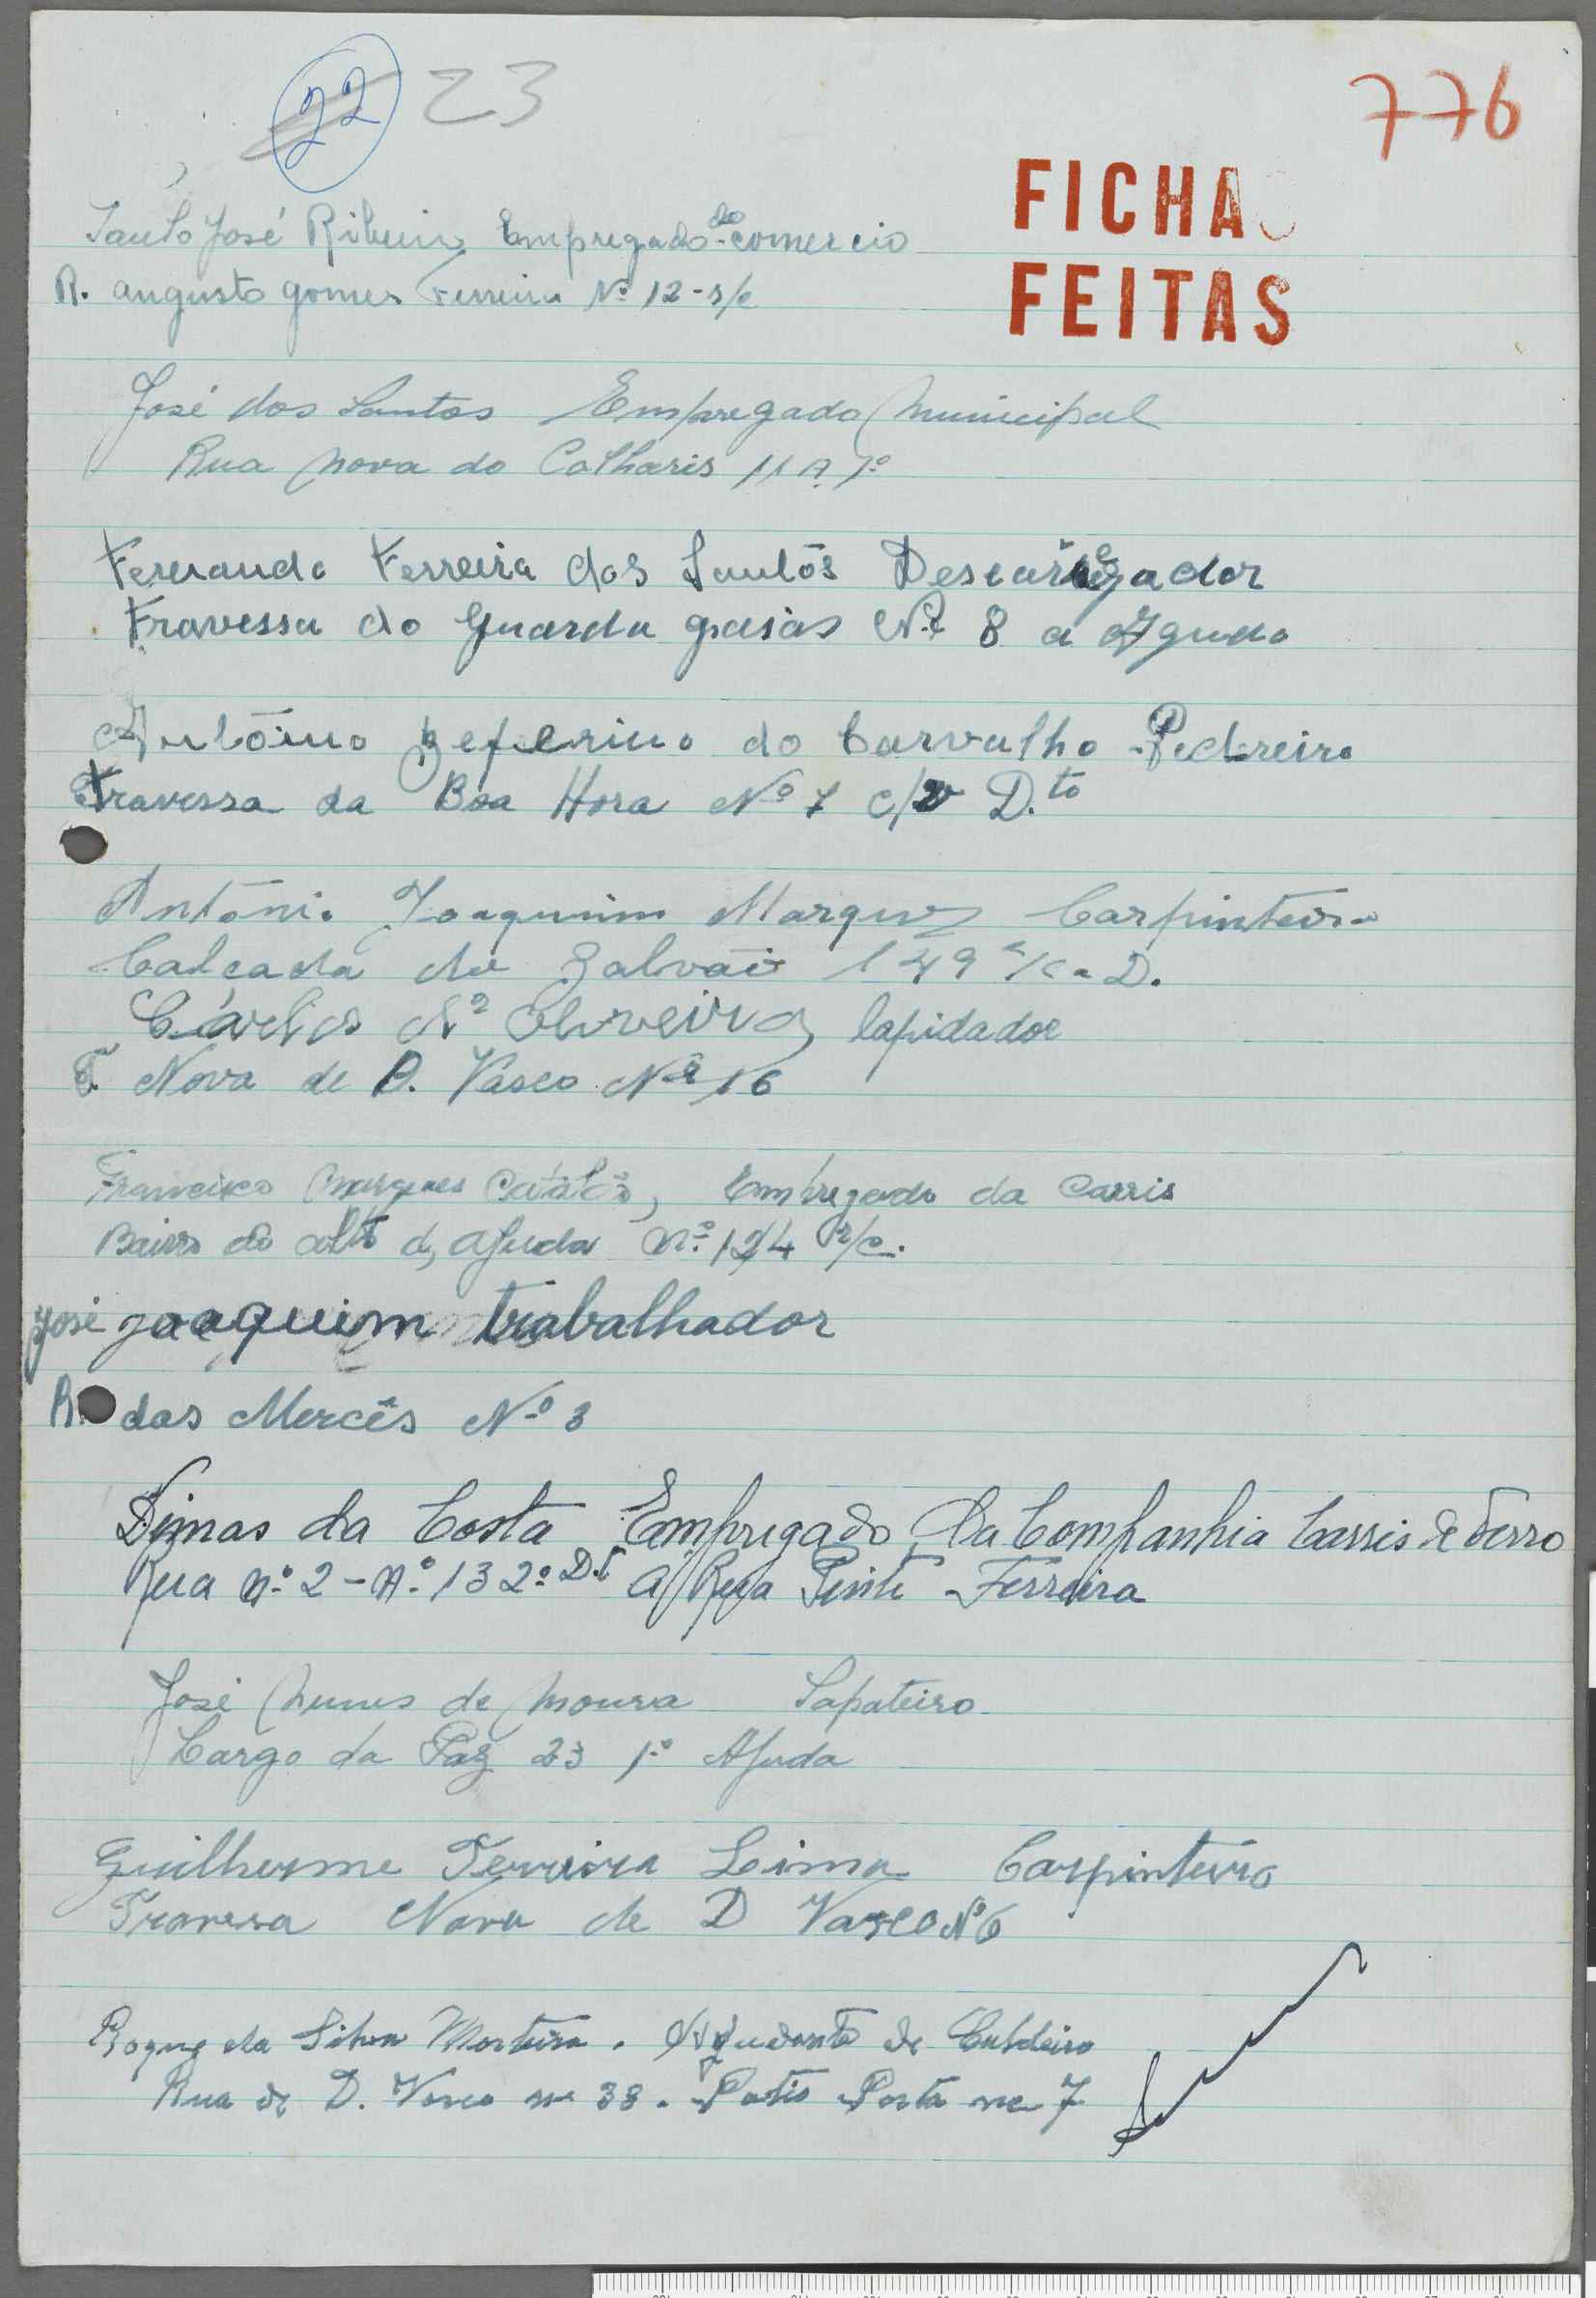 22 23
776
FICHAS
FEITAS
José Ribeiro Empregado do comercio
R. augusto gomes Ferreira Nº 12-r/c
José dos Santos Empregado Municipal
Rua Nova do Calharis 11 A. 1º
Fernando Ferreira dos Santos Descarregador
Travessa do Guarda Nº 8 a
António Zeferino do Carvalho Pedreiro
Travessa da Boa Hora Nº 7 c/v D.to
António Joaquim Marques Carpinteiro
Calçada do Galvão 149 r/c D.
Oliveira lapidador
T. Nova de D. Vasco Nº 16
Francisco Marques Catalão, Empregado da Carris
Bairro do alto d, ajuda Nº 124 r/c.
José joaquim trabalhador
R. das Mercês Nº 3
Dimas da Costa Empregado Da Companhia Carris de Ferro
Rua Nº 2 - Nº 13 2º Dt. á Rua Pinto Ferreira
José Nunes de Moura Sapateiro
Largo da Paz 23 1º Ajuda
Guilherme Ferreira Lima Carpinteiro
Travesa Nova de D Vasco Nº 6
Roque da Silva Monteiro. Ajudante de Caldeiro
Rua de D. Vasco nº 38. Patio Porta nº 7